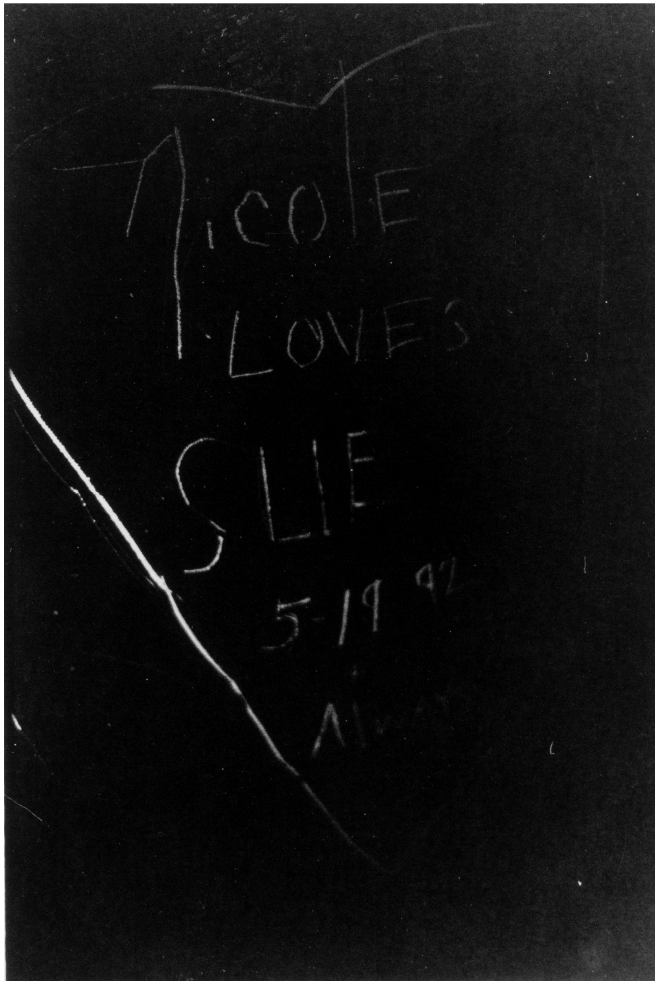 NICOLE
LOVES
SLIE
5-19 92
Always